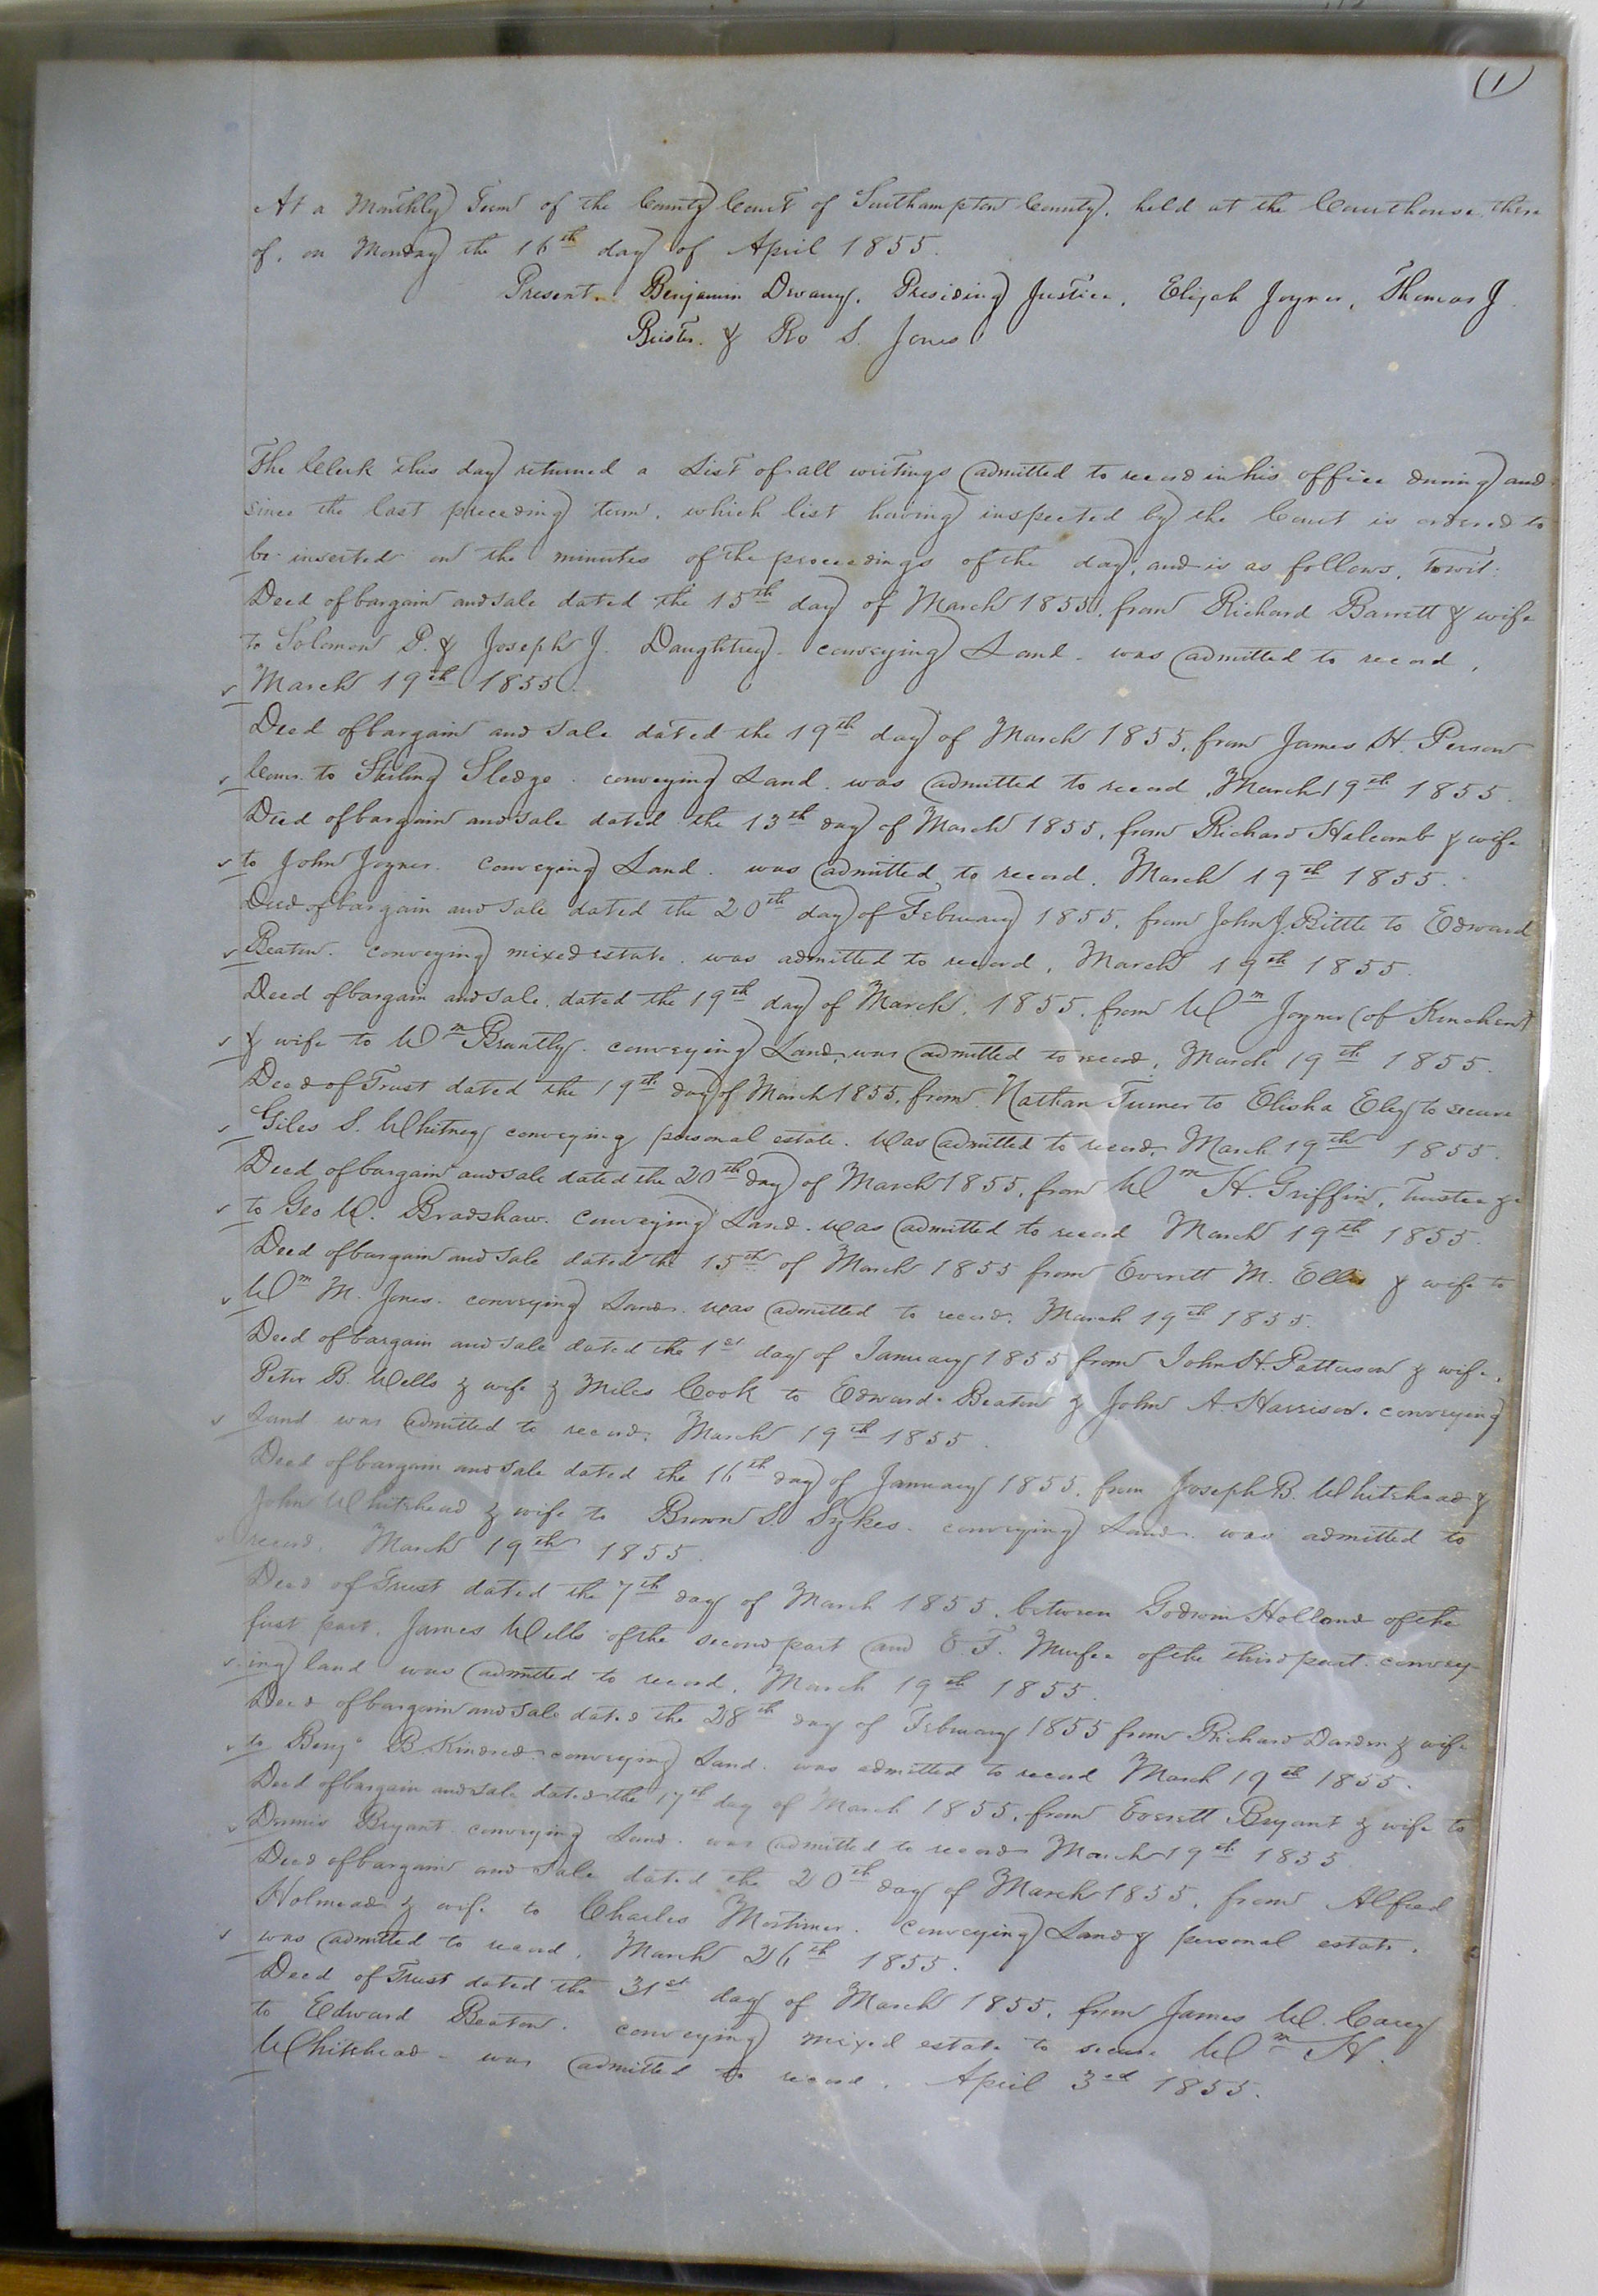 (1)
At a Monthly Term of the County Court of Southampton County, held at the Courthouse there
of, on Monday the 16th day of April 1855.
Present. Benjamin Drewry, Presiding Justice, Elijah Joyner, Thomas J.
& Ro S. Jones
The Clerk this day returned a List of all writings admitted to record in his office during and
since the last preceeding term, which list having inspected by the Court is ordered to
be inserted on the minutes of the proceedings of the day, and is as follows, towit:
Deed of bargain and sale dated the 15th day of March 1855, from Richard Barrett & wife
to Solomon P. & Joseph J. Daughtrey. conveying Land. was admitted to record,
March 19th 1855.
Deed of bargain and sale dated the 19th day of March 1855, from James H. Person
Comr. to Sterling Sledge. conveying Land. was admitted to record, March 19th 1855.
Deed of bargain and sale dated the 13th day of March 1855, from Richard Halcomb & wife
to John Joyner. conveying Land. was admitted to record. March 19th 1855.
Deed of bargain and sale dated the 20th day of February 1855, from John J. Bittle to Edward
Beaton. conveying mixed estate. was admitted to record, March 19th 1855.
Deed of bargain and sale, dated the 19th day of March, 1855, from Wm Joyner (of Kinchen)
& wife to Wm Brantly. conveying Land, was admitted to record, March 19th 1855.
Deed of Trust dated the 19th day of March 1855, from Nathan Turner to Elisha Eley to secure
Giles S. Whitney conveying personal estate. Was admitted to record, March 19th 1855.
Deed of bargain and sale dated the 20th day of March 1855, from Wm H. Griffin, Trustee &c
to Geo W. Bradshaw. conveying Land. was admitted to record March 19th 1855.
Deed of bargain and sale dated the 15th of March 1855 from Everitt M. Ellis & wife to
Wm M. Jones. conveying Land. was admitted to record. March 19th 1855.
Deed of bargain and sale dated the 1st day of January 1855 from John H. Patterson & wife,
Peter B. Wells & wife & Miles Cook to Edward Beaton & John A Harrison. conveying
Land was admitted to record. March 19th 1855.
Deed of bargain and sale dated the 16th day of January 1855. from Joseph B. Whitehead &
John Whitehead & wife to Brown S. Sykes. conveying Land. was admitted to
record, March 19th 1855.
Deed of Trust dated the 7th day of March 1855. between Godwin Holland of the
first part, James Wells of the second part and E. T. Murfee of the third part. convey-
ing land was admitted to record, March 19th 1855.
Deed of bargain and sale dated the 28th day of February 1855 from Richard Darden & wife
to Benja B. Kindred. conveying Land. was admitted to record March 19th 1855.
Deed of bargain and sale dated the 17th day of March 1855, from Everett Bryant & wife to
Dennis Bryant. conveying Land. was admitted to record March 19th 1855
Deed of bargain and sale dated the 20th day of March 1855, from Alfred
Holmead & wife to Charles Mortimer. conveying Land & personal estate.
was admitted to record, March 26th 1855.
Deed of Trust dated the 31st day of March 1855, from James W. Carey
to Edward Beaton. conveying mixed estate to secure Wm H.
Whitehead - was admitted to record. April 3rd 1855.